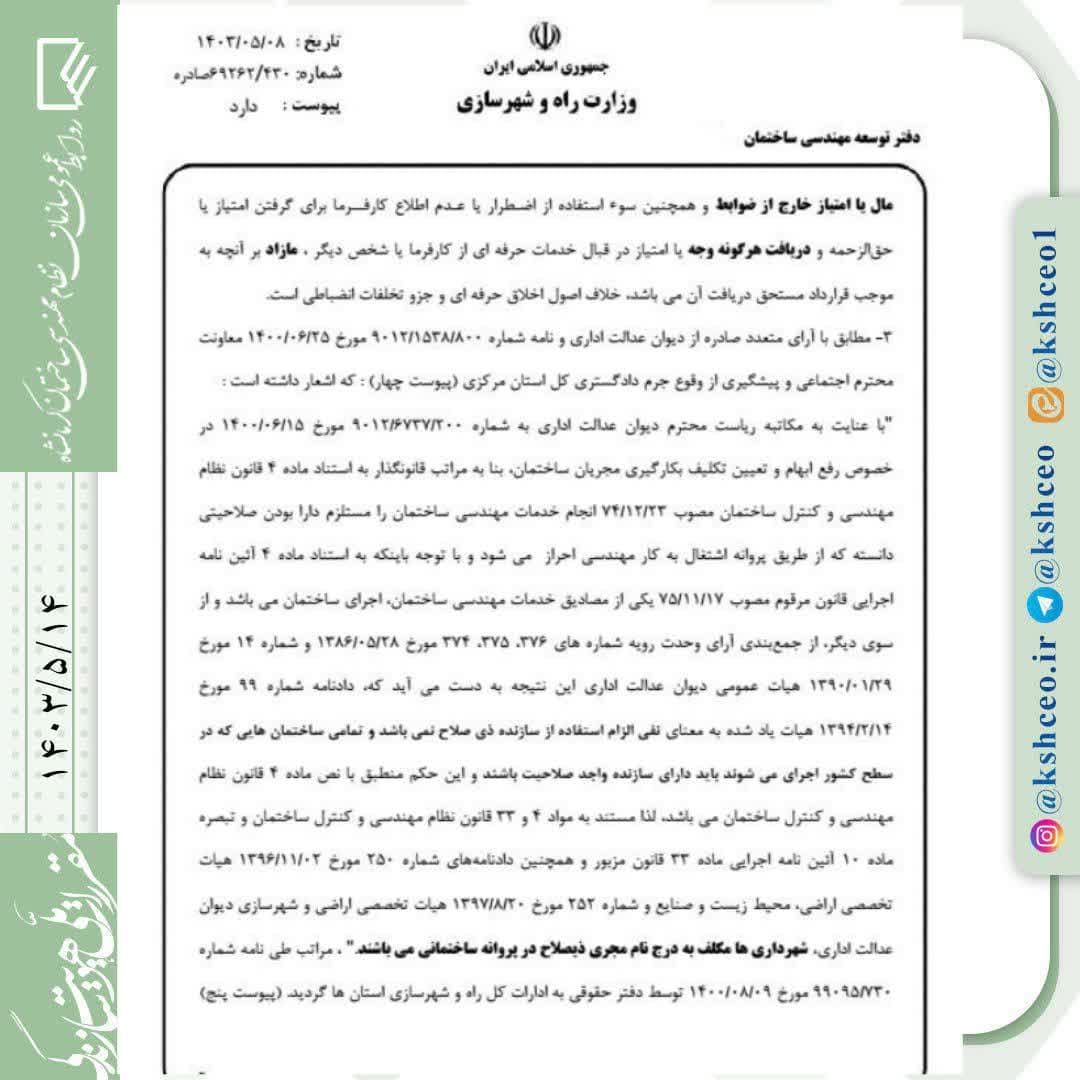 تاریخ : ۱۴۰۳/۰۵/۰۸
شماره: ۶۹۲۶۲/۴۳۰صادره
پیوست : دارد
جمهوری اسلامی ایران
وزارت راه و شهرسازی
دفتر توسعه مهندسی ساختمان
مال یا امتیاز خارج از ضوابط و همچنین سوء استفاده از اضطرار یا عدم اطلاع کارفرما برای گرفتن امتیاز یا
حق‌الزحمه و دریافت هرگونه وجه یا امتیاز در قبال خدمات حرفه ای از کارفرما یا شخص دیگر ، مازاد بر آنچه به
موجب قرارداد مستحق دریافت آن می باشد، خلاف اصول اخلاق حرفه ای و جزو تخلفات انضباطی است.
۳- مطابق با آرای متعدد صادره از دیوان عدالت اداری و نامه شماره ۹۰۱۲/۱۵۳۸/۸۰۰ مورخ ۱۴۰۰/۰۶/۲۵ معاونت
محترم اجتماعی و پیشگیری از وقوع جرم دادگستری کل استان مرکزی (پیوست چهار) : که اشعار داشته است :
"با عنایت به مکاتبه ریاست محترم دیوان عدالت اداری به شماره ۹۰۱۲/۶۷۳۷/۲۰۰ مورخ ۱۴۰۰/۰۶/۱۵ در
خصوص رفع ابهام و تعیین تکلیف بکارگیری مجریان ساختمان، بنا به مراتب قانونگذار به استناد ماده ۴ قانون نظام
مهندسی و کنترل ساختمان مصوب ۷۴/۱۲/۲۳ انجام خدمات مهندسی ساختمان را مستلزم دارا بودن صلاحیتی
دانسته که از طریق پروانه اشتغال به کار مهندسی احراز می شود و با توجه باینکه به استناد ماده ۴ آئین نامه
اجرایی قانون مرقوم مصوب ۷۵/۱۱/۱۷ یکی از مصادیق خدمات مهندسی ساختمان، اجرای ساختمان می باشد و از
سوی دیگر، از جمع‌بندی آرای وحدت رویه شماره های ۳۷۶، ۳۷۵، ۳۷۴ مورخ ۱۳۸۶/۰۵/۲۸ و شماره ۱۴ مورخ
۱۳۹۰/۰۱/۲۹ هیات عمومی دیوان عدالت اداری این نتیجه به دست می آید که، دادنامه شماره ۹۹ مورخ
۱۳۹۴/۲/۱۴ هیات یاد شده به معنای نفی الزام استفاده از سازنده ذی صلاح نمی باشد و تمامی ساختمان هایی که در
سطح کشور اجرای می شوند باید دارای سازنده واجد صلاحیت باشند و این حکم منطبق با نص ماده ۴ قانون نظام
مهندسی و کنترل ساختمان می باشد، لذا مستند به مواد ۴ و ۳۳ قانون نظام مهندسی و کنترل ساختمان و تبصره
ماده ۱۰ آئین نامه اجرایی ماده ۳۳ قانون مزبور و همچنین دادنامه‌های شماره ۲۵۰ مورخ ۱۳۹۶/۱۱/۰۲ هیات
تخصصی اراضی، محیط زیست و صنایع و شماره ۲۵۲ مورخ ۱۳۹۷/۸/۲۰ هیات تخصصی اراضی و شهرسازی دیوان
عدالت اداری، شهرداری ها مکلف به درج نام مجری ذیصلاح در پروانه ساختمانی می باشند." ، مراتب طی نامه شماره
۹۹۰۹۵/۷۳۰ مورخ ۱۴۰۰/۰۸/۰۹ توسط دفتر حقوقی به ادارات کل راه و شهرسازی استان ها گردید. (پیوست پنج)
روابط عمومی سازمان نظام مهندسی ساختمان کرمانشاه
۱۴۰۳/۵/۱۴
@kshceo.ir @kshceo @kshceo1